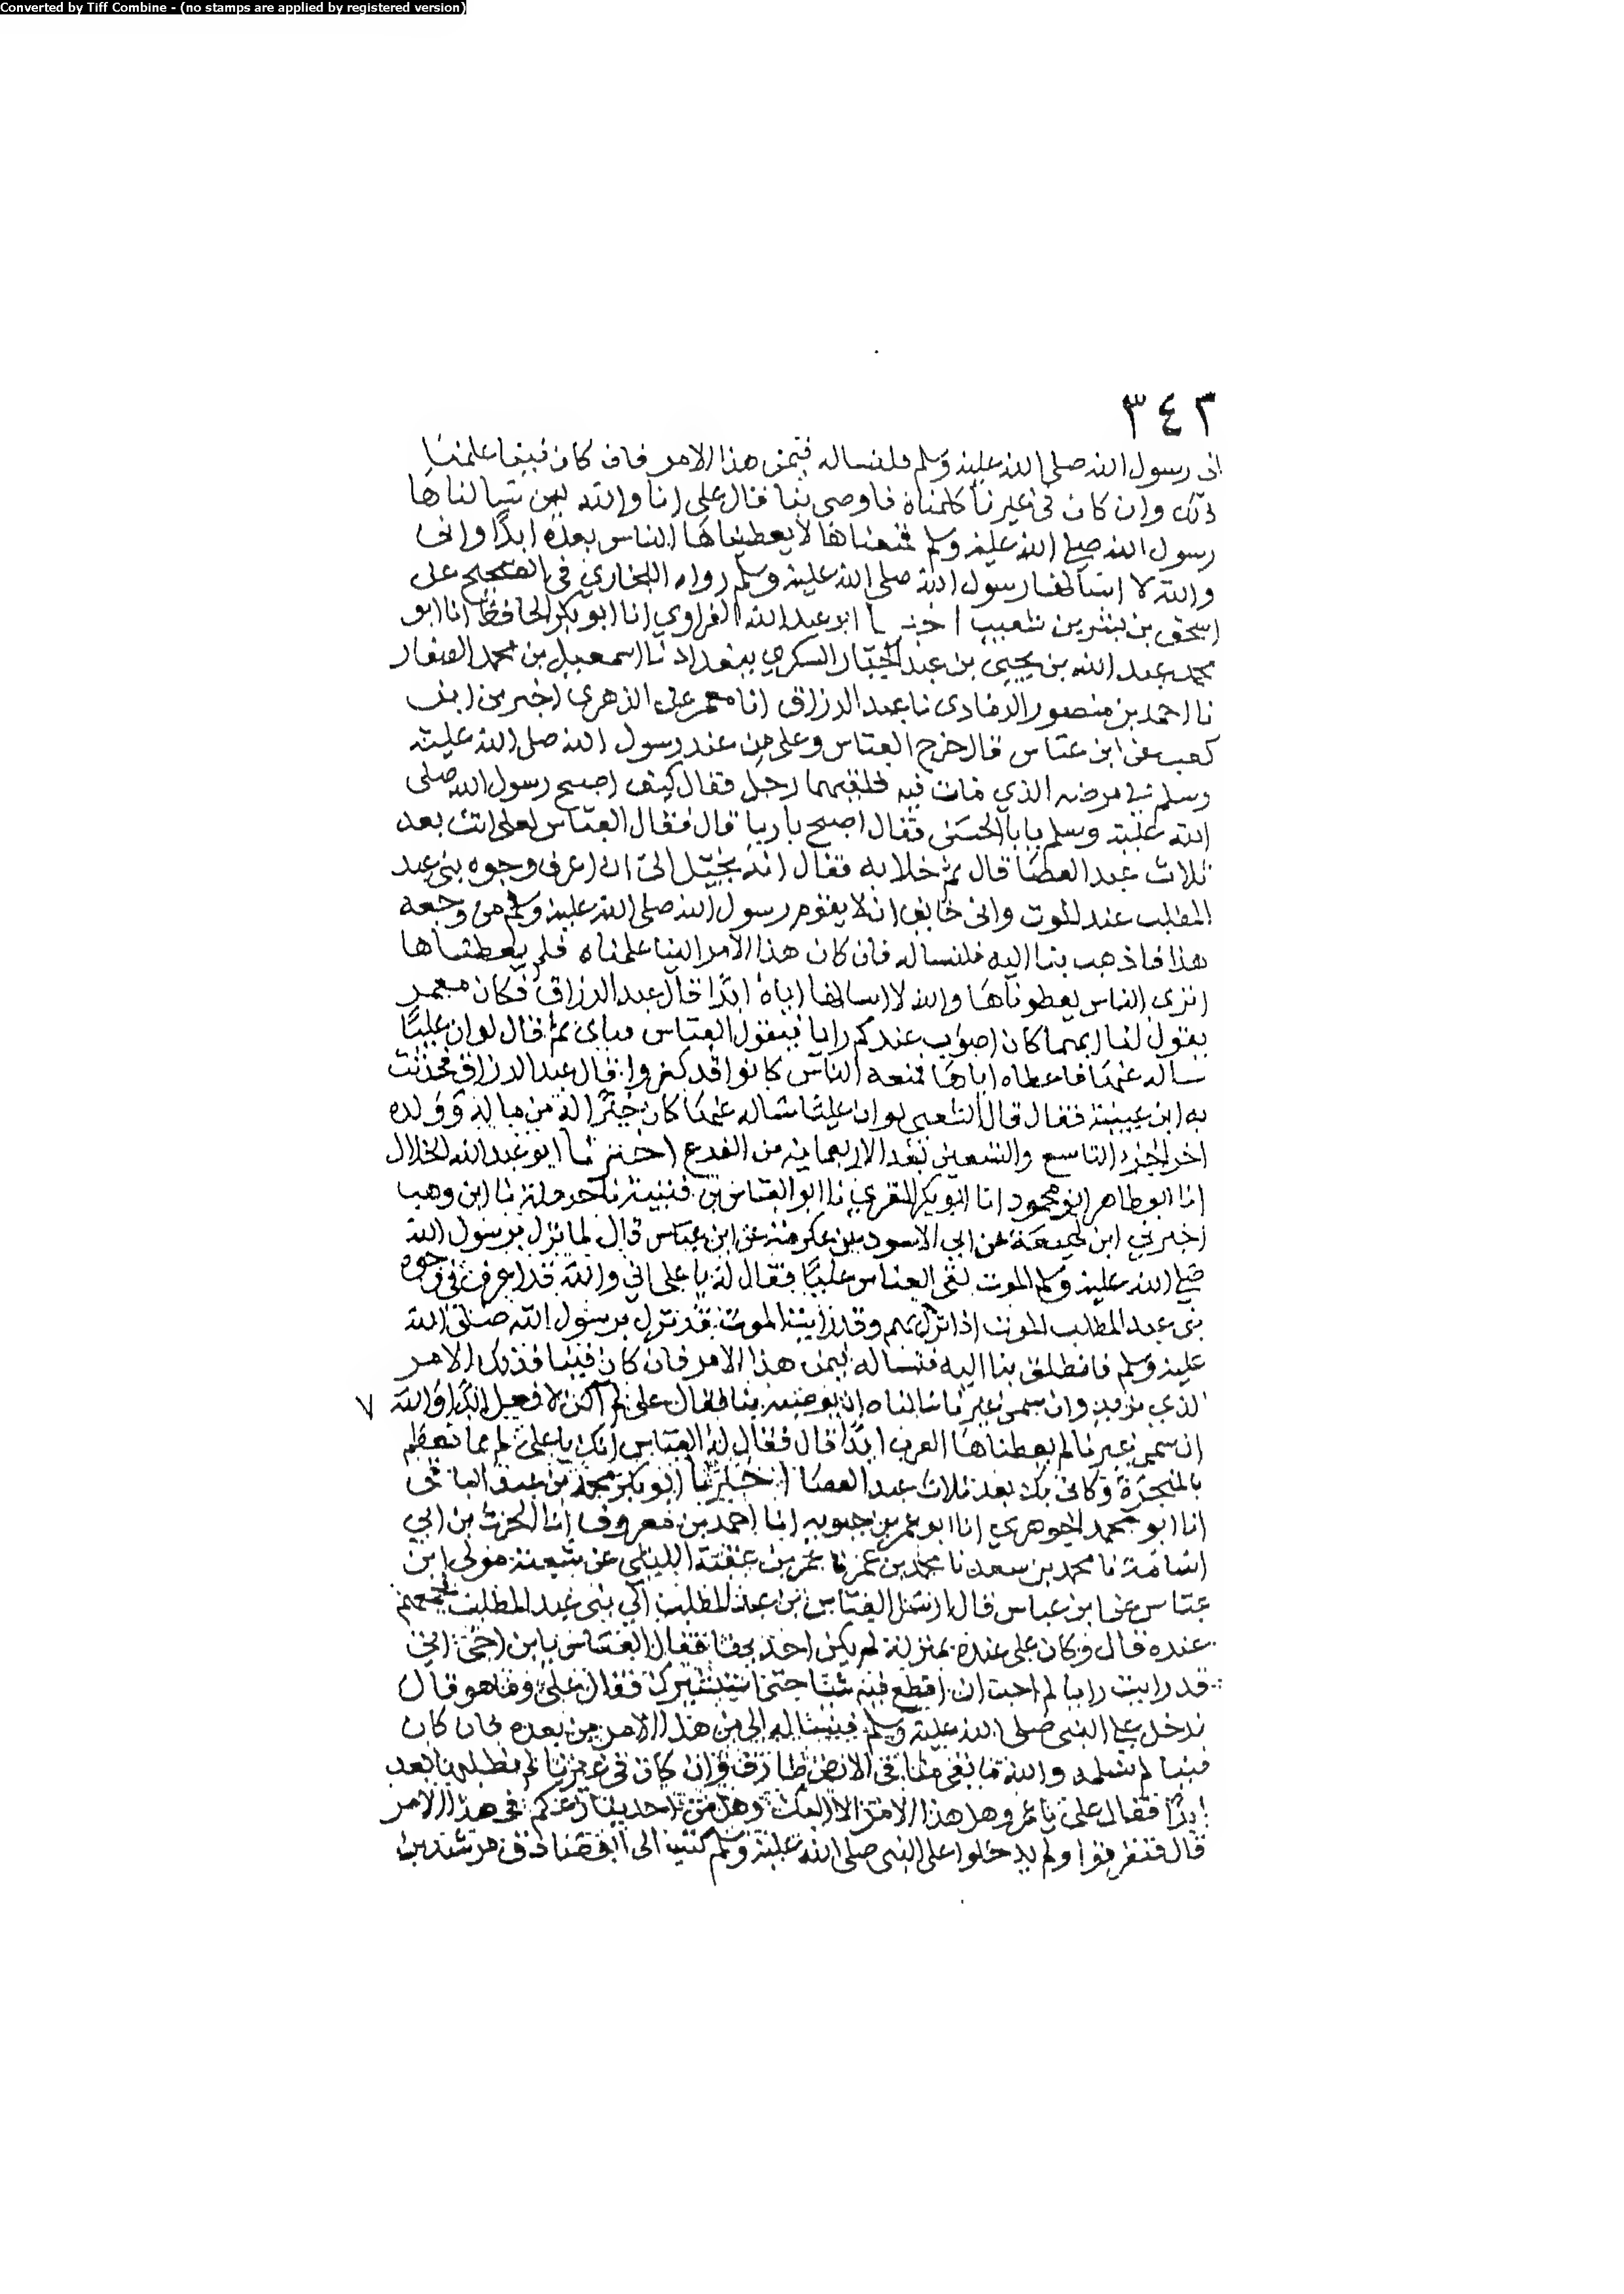 Converted by Tiff Combine - (no stamps are applied by registered version)
٣٤٢
الى رسول الله صلى الله عليه وسلم فلنساله فيمن هذا الامر فان كان فينا علمنا
ذلك وان كان في غيرنا كلمناه فاوصى بنا فقال علي انا والله لين سالناها
رسول الله صلى الله عليه وسلم فمنعناها لا يعطيناها الناس بعده ابدا واني
والله لا اسالها رسول الله صلى الله عليه وسلم رواه البخاري في الصحيح عن
اسحق بن بشر بن شعيب اخبرنا ابو عبد الله الفراوي انا ابو بكر الحافظ انا ابو
محمد عبد الله بن يحيى بن عبد الجبار السكري ببغداد نا اسمعيل بن محمد الصفار
نا احمد بن منصور الرمادي نا عبد الرزاق انا معمر عن الزهري اخبرني ابن
كعب عن ابن عباس قال خرج العباس وعلي من عند رسول الله صلى الله عليه
وسلم في مرضه الذي مات فيه فلقيهما رجل فقال كيف اصبح رسول الله صلى
الله عليه وسلم يابا الحسن فقال اصبح باريا قال فقال العباس لعلي انت بعد
ثلاث عبد العصا قال ثم خلا به فقال انه يخيل الي ان اعرف وجوه بني عبد
المطلب عند الموت واني خايف ان لا يقوم رسول الله صلى الله عليه وسلم من وجعه
هذا فاذهب بنا اليه فلنساله فان كان هذا الامر الينا علمناه فلم يعطناها
اترى الناس يعطوناها والله لا اسالها اياه ابدا قال عبد الرزاق فكان معمر
يقول لنا ايهما كان اصوب عندكم رايا فنقول العباس فيابى ثم قال لو ان عليا
ساله عنها فاعطاه اياها فمنعه الناس كانوا قد كفروا قال عبد الرزاق فحدثت
به ابن عيينة فقال قال الشعبي لو ان عليا ساله عنها كان خيرا له من ماله وولده
اخر الجزء التاسع والتسعين بعد الاربعماية من الفرع اخبرنا ابو عبد الله الخلال
انا ابو طاهر بن محمود انا ابو بكر المقري نا ابو العباس بن قتيبة نا حرملة نا ابن وهب
اخبرني ابن لهيعة عن ابي الاسود عن عكرمة عن ابن عباس قال لما نزل برسول الله
صلى الله عليه وسلم الموت لقي العباس عليا فقال له يا علي اني والله قد اعرف في وجوه
بني عبد المطلب الموت اذا نزل بهم وقد رايت الموت قد نزل برسول الله صلى الله
عليه وسلم فانطلق بنا اليه فنساله لمن هذا الامر فان كان فينا فذلك الامر
الذي نريد وان سمى غيرنا سالناه ان يوصيه بنا فقال علي لم اكن لافعل ابدا والله ٧
ان سمى غيرنا لم يعطناها العرب ابدا قال فقال له العباس انك يا علي لم مما تعظم
بالمنجرة وكاني بك بعد ثلاث عبد العصا اخبرنا ابو بكر محمد بن عبد الباقي
انا ابو محمد الجوهري انا ابو عمر بن حيويه انا احمد بن معروف انا الحرث بن ابي
اسامة نا محمد بن سعد نا محمد بن عمر نا عمر بن عقبة الليثي عن شعبة مولى ابن
عباس عن ابن عباس قال ارسل العباس بن عبد المطلب الى بني عبد المطلب فجمعهم
عنده قال وكان علي عنده بمنزلة لم يكن احد بها فقال العباس يا بن اخي اني
قد رايت رايا لم احب ان اقطع فيه شيا حتى استشيرك فقال علي وما هو قال
ندخل على النبي صلى الله عليه وسلم فنساله الى من هذا الامر من بعده فان كان
فينا لم نسلمه والله ما بقي منا في الارض طارف وان كان في غيرنا لم نطلبها بعد
ابدا فقال علي يا عم وهل هذا الامر الا اليك وهل من احد ينازعكم في هذا الامر
قال فتفرقوا ولم يدخلوا على النبي صلى الله عليه وسلم كتب الي ابو صادق مرشد بن